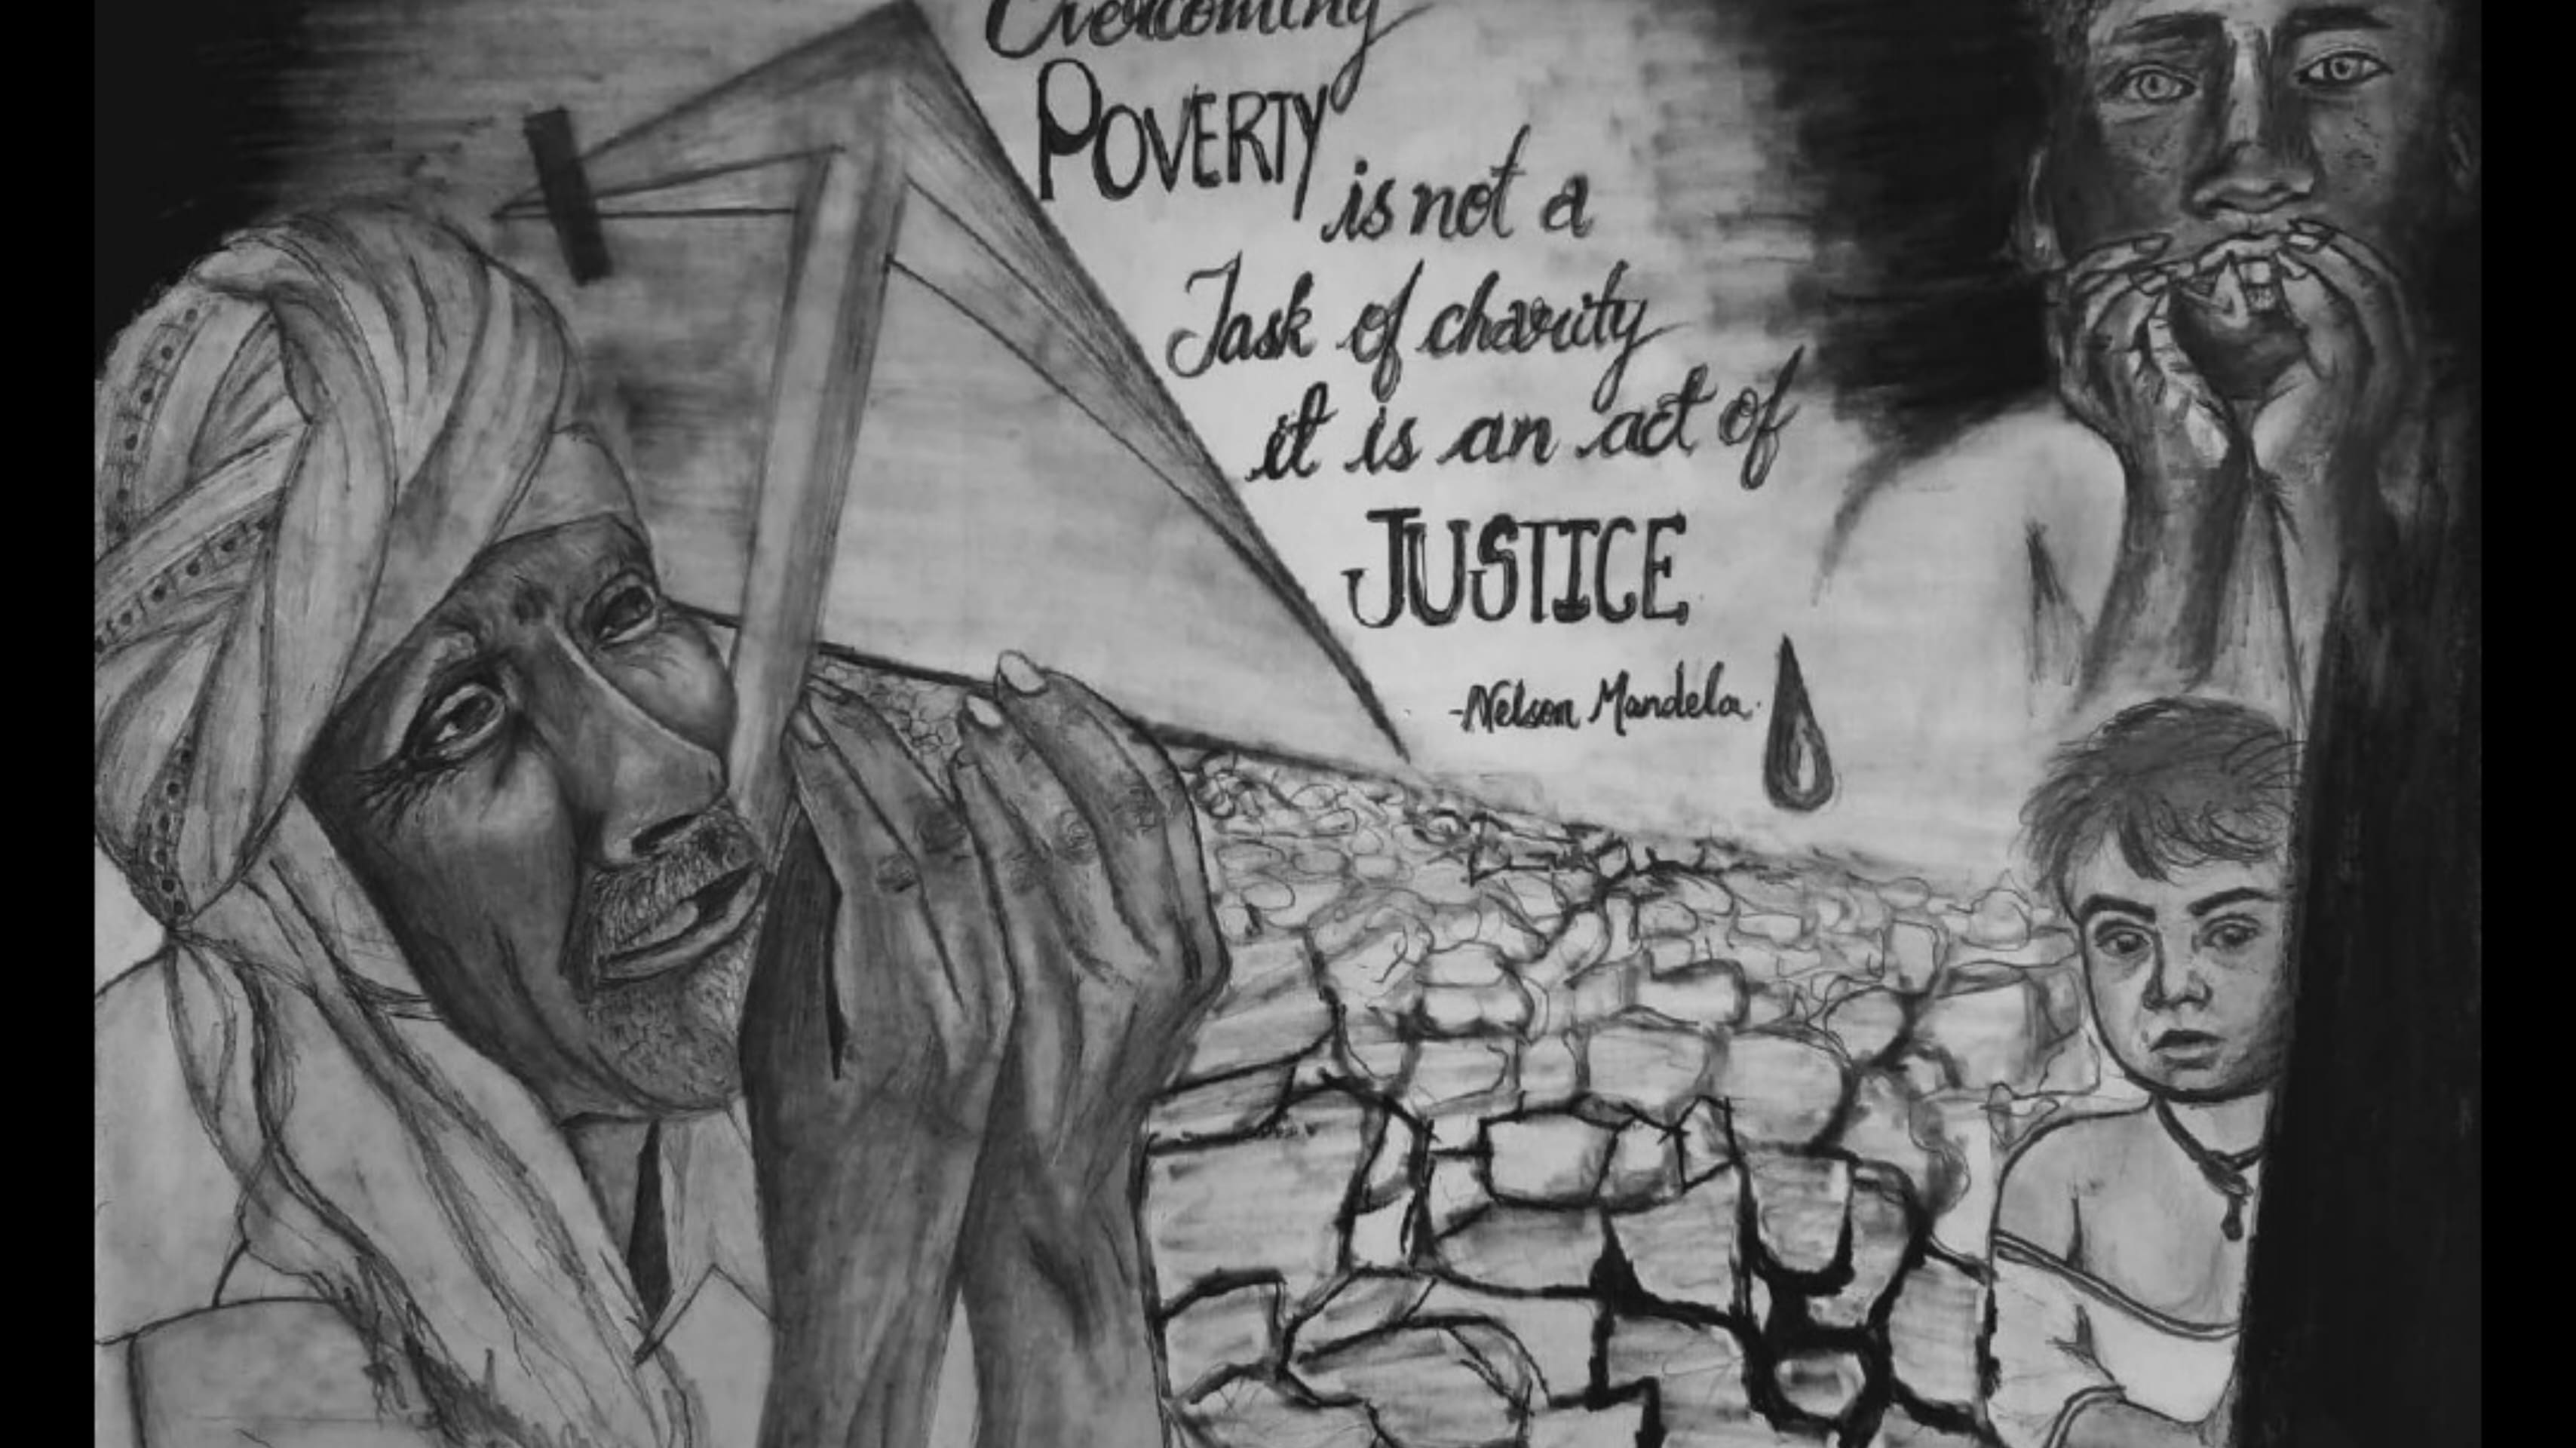 Overcoming
POVERTY
is not a
Task of charity
it is an act of
JUSTICE
-Nelson Mandela.